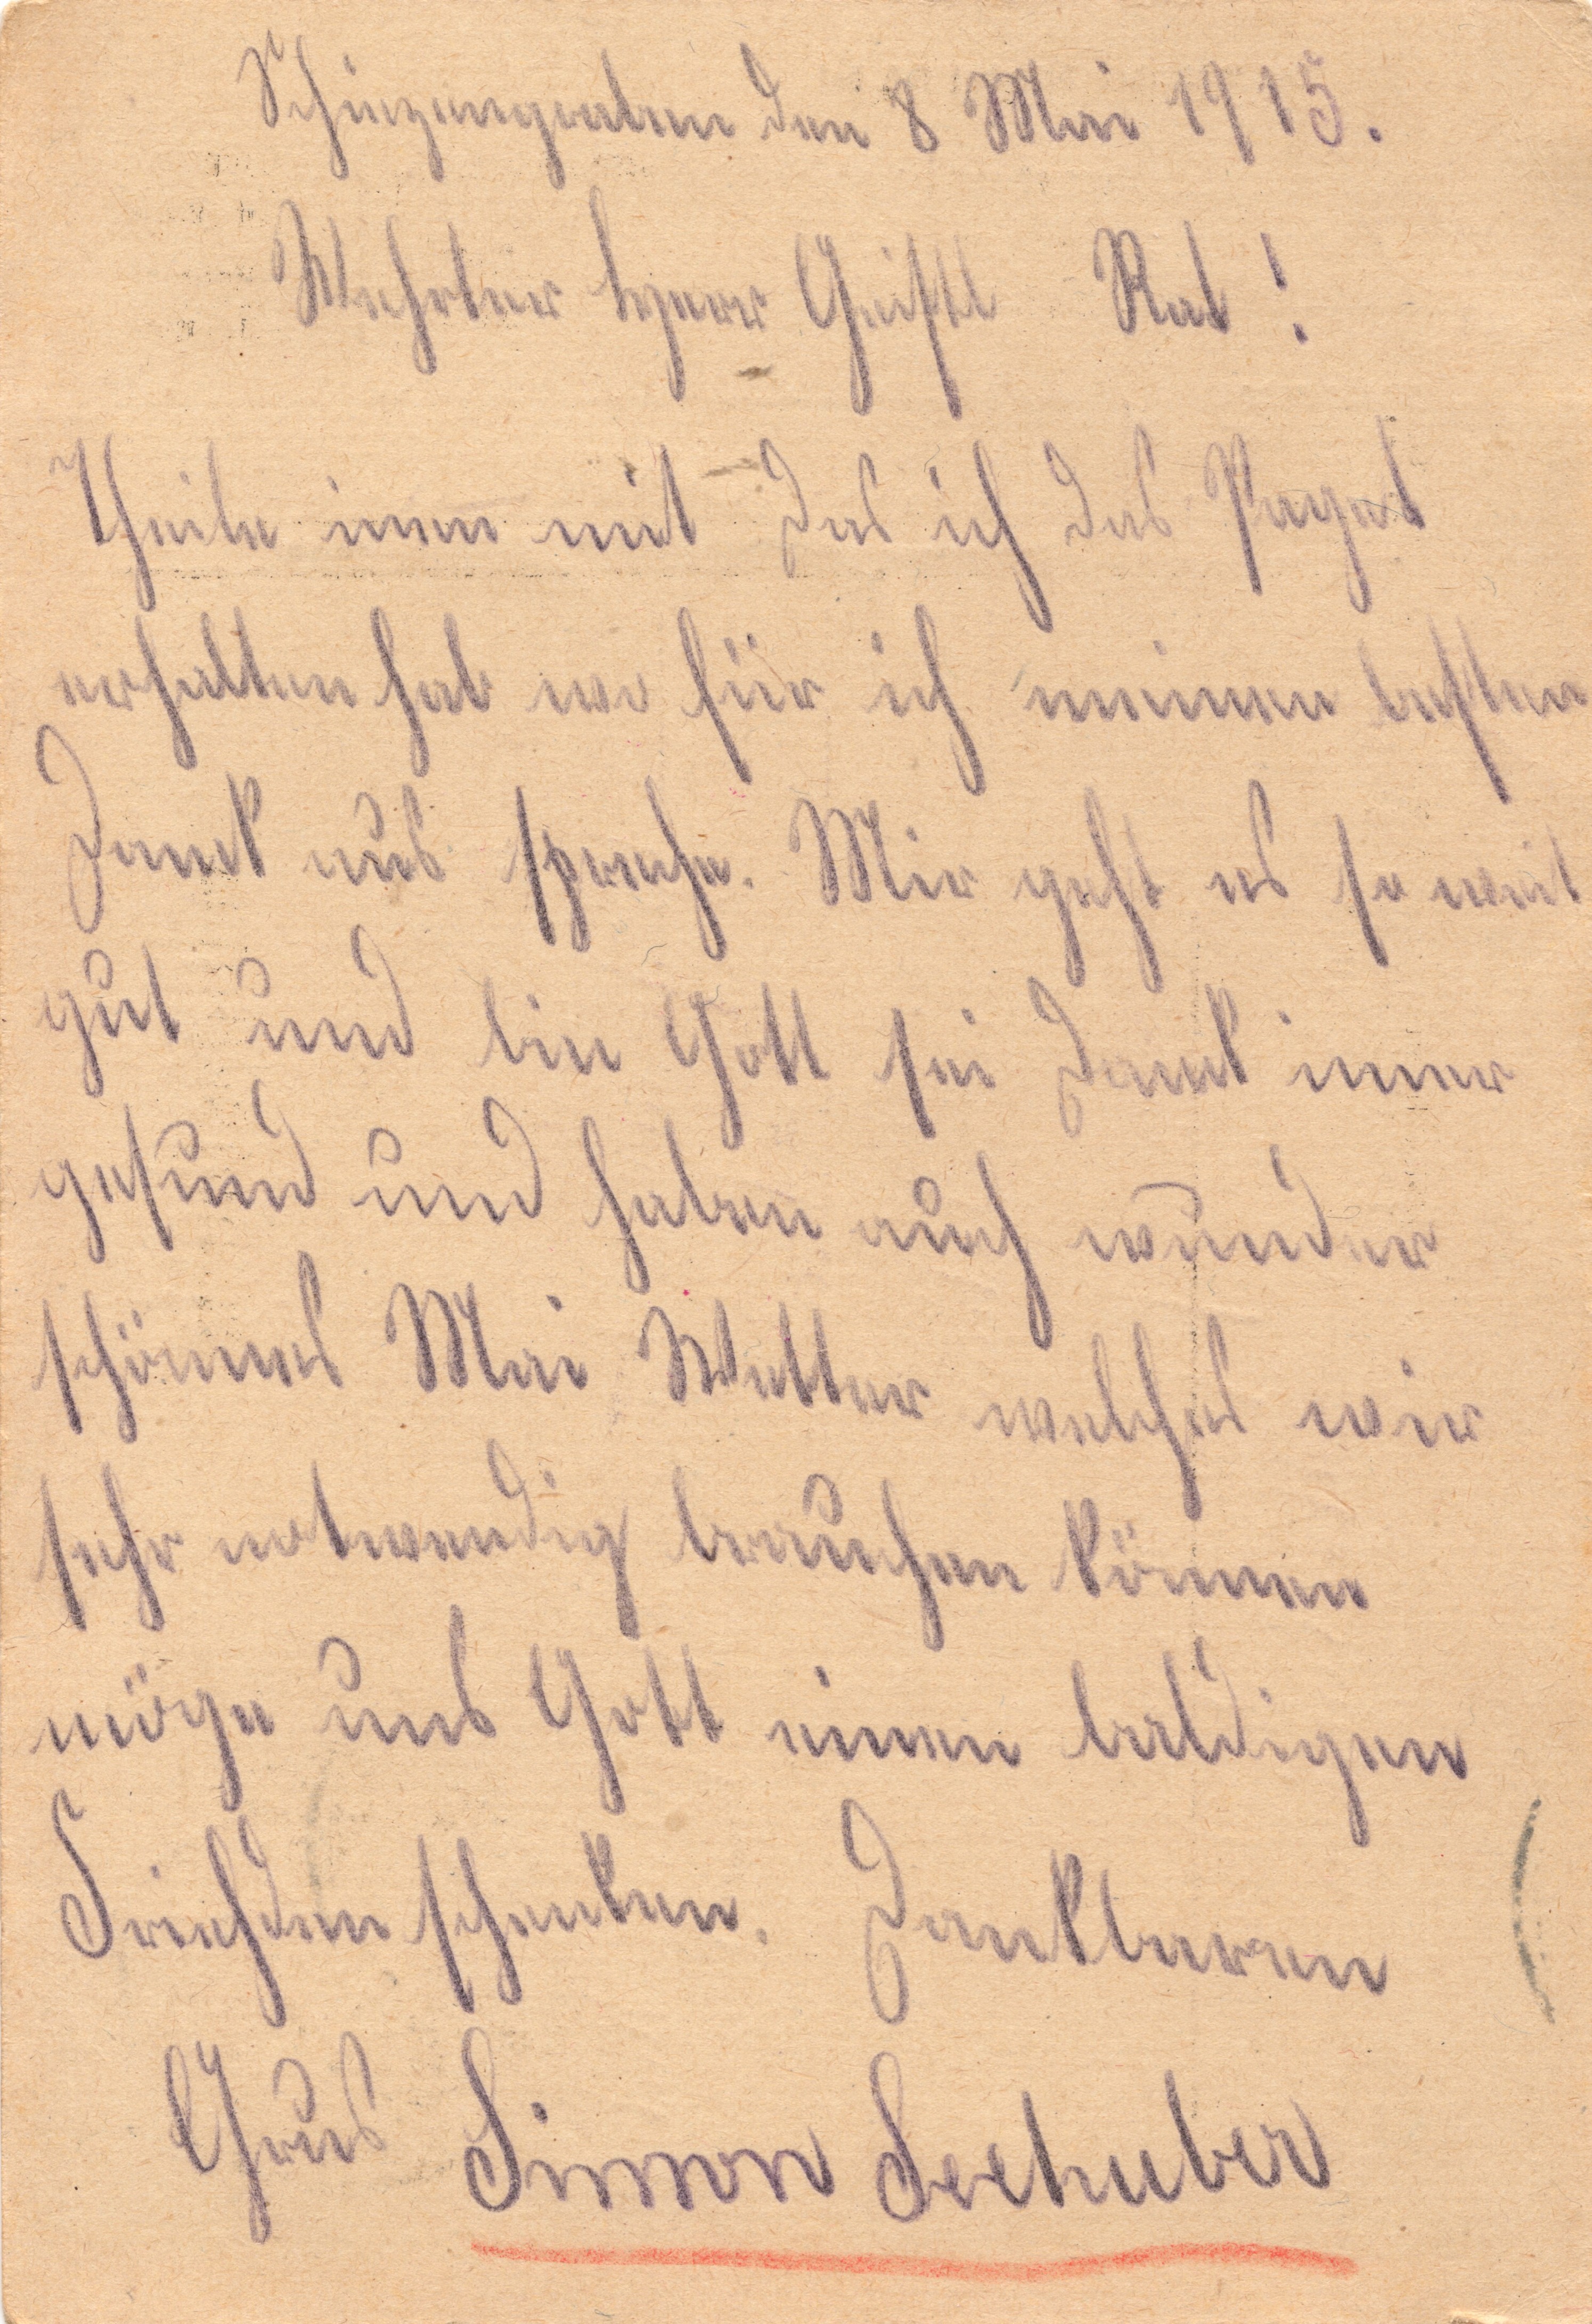 Schüzengraben den 8 Mai 1915.
Wehrter Herr Geistl Rat!
Theile inen mit das ich das Paget
erhalten hab wo für ich meinen besten
Dank aus spreche. Mir geht es so weit
gut und bin Gott sei Dank imer
gesund und haben auch wunder
schönnes Mai Wetter welches wir
sehr notwendig brauchen können
möge uns Gott einen baldigen
Friehden schenken. Dankbaren
Grus Simon Seehuber